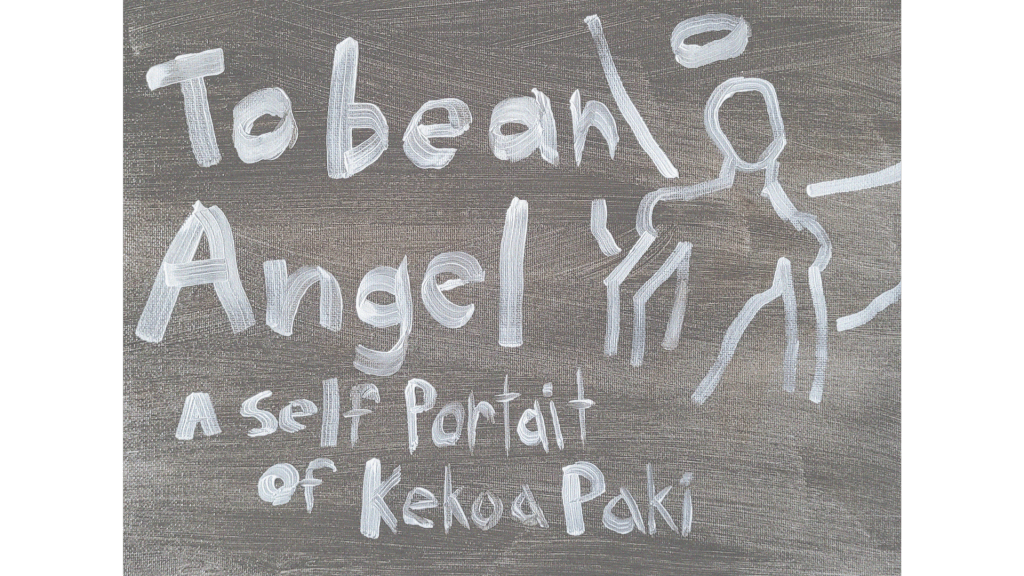 To be an
Angel
A self Portait
of Kekoa Paki